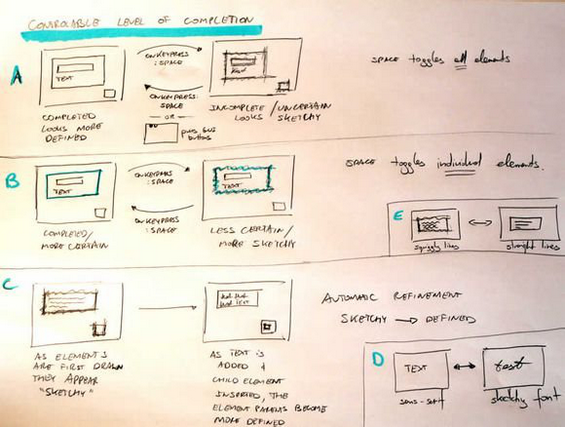 CONTROLABLE LEVEL OF COMPLETION
A
TEXT
ONKEYPRESS
: SPACE
ONKEYPRESS:
SPACE
- OR -
COMPLETED
LOOKS MORE
DEFINED
INCOMPLETE / UNCERTAIN
LOOKS SKETCHY
buttons
SPACE toggles all elements
B
TEXT
ONKEYPRESS
: SPACE
ONKEYPRESS
: SPACE
TEXT
COMPLETED /
MORE CERTAIN
LESS CERTAIN /
MORE SKETCHY
SPACE toggles individual elements.
E
squiggly lines
straight lines
C
AS ELEMENTS
ARE FIRST DRAWN
THEY APPEAR
"SKETCHY"
AS TEXT IS
ADDED &
CHILD ELEMENT
INSERTED, THE
ELEMENT PARENTS BECOME
MORE DEFINED
AUTOMATIC REFINEMENT
SKETCHY → DEFINED
D
TEXT
sans-serif
text
sketchy font